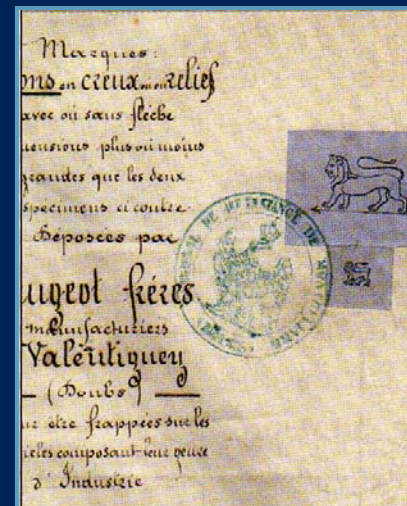 Marques:
ons en creux ou en relief
avec où sans flèche
mensions plus où moins
grandes que les deux
specimens ci contre.
Déposées par
ugeot frères
manufacturiers
Valentigney
(Doubs)
ur être frappées sur les
icles composant leur genre
d'Industrie
TRIBUNAL DE 1re INSTANCE DE MONTBÉLIARD